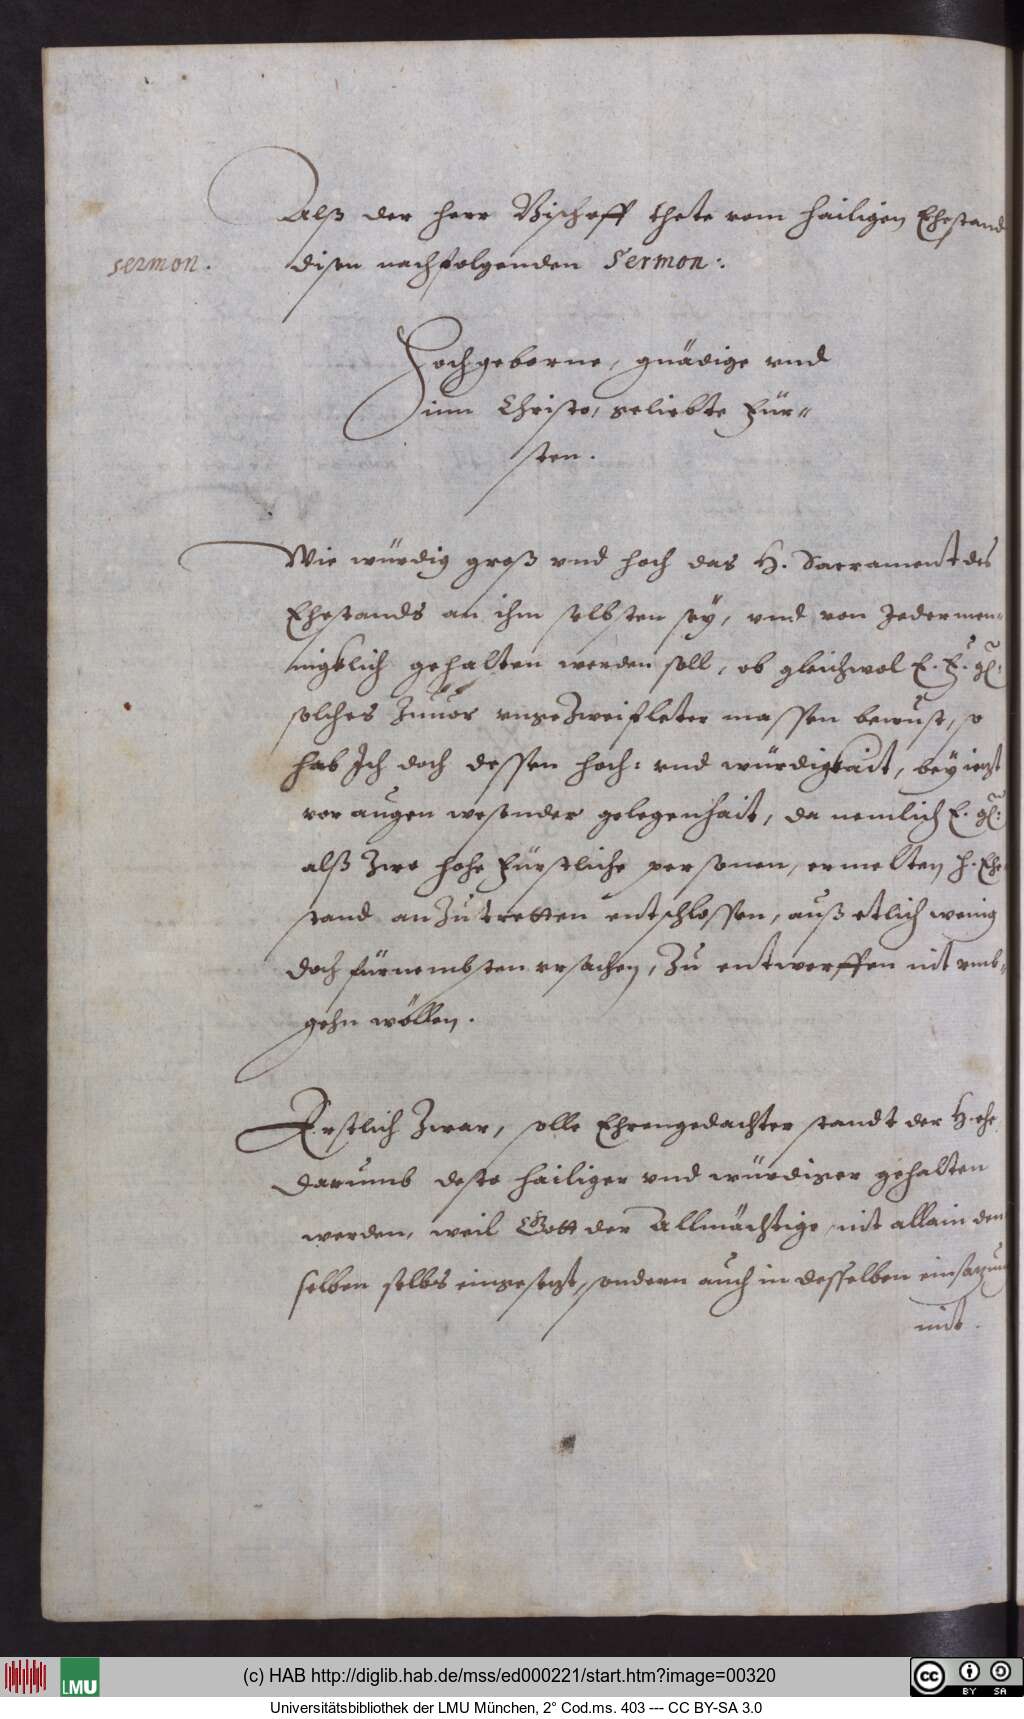 Alß der herr Bischoff thete vom hailigen Ehestand
sermon. disen nachfolgenden Sermon:.
Hochgeborne, gnädige vnd
inn Christo, geliebte Für=
sten.
Wie würdig groß vnd hoch das H. Sacrament des
Ehestands an ihm selbsten sey, vnd von Jedermen=
nigklich gehalten werden soll, ob gleichwol E. F. Gl:
solches Zuuor vngezweifleter massen bewust, so
hab Ich doch dessen hoch: vnd würdigkait, bey iezt
vor augen wesender gelegenhait, da nemlich E. Gl:
alß Zwo hohe Fürstliche personen, ermelten H. Ehe
stand anzutretten entschlossen, auß etlich wenig
doch fürnembsten vrsachen, Zu entwerffen nit vmb=
gehn wöllen.
Erstlich Zwar, solle Ehrengedachter standt der H. ehe
darumb desto hailiger vnd würdiger gehalten
werden, weil Gott der Allmächtige nit allain den
selben selbs eingesezt, sondern auch in desselben einsazung
mit.
(c) HAB http://diglib.hab.de/mss/ed000221/start.htm?image=00320
LMU
cc BY SA
Universitätsbibliothek der LMU München, 2° Cod.ms. 403 --- CC BY-SA 3.0